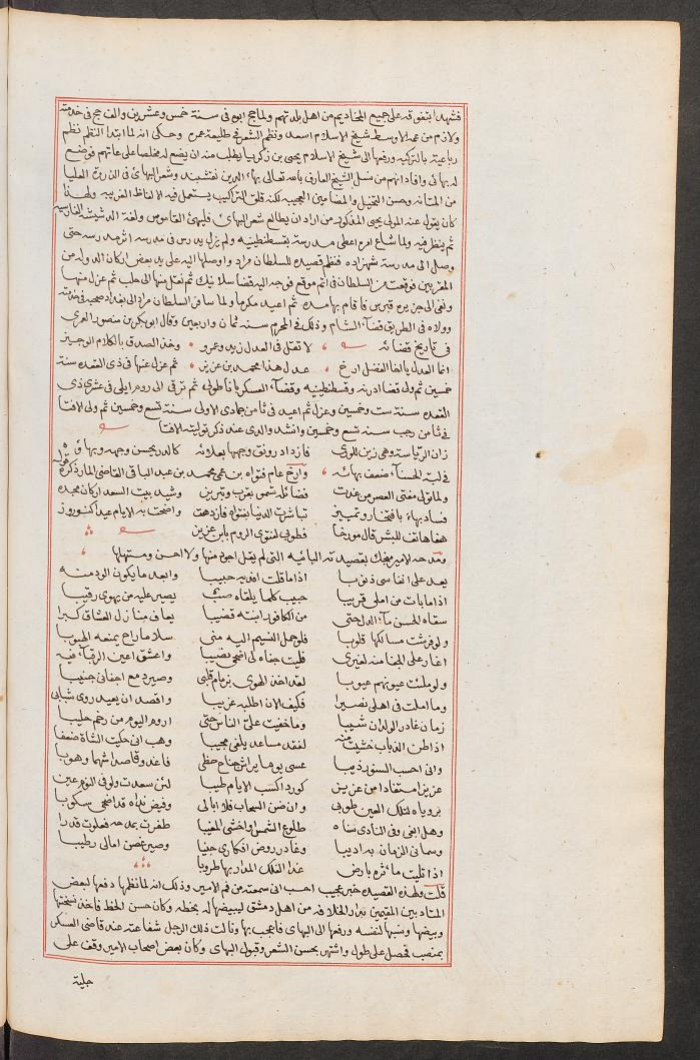 فشهدا بتفوقه على جميع المخاديم من اهل بلدتهم ولما حج ابوه في سنة خمس وعشرين والف حج في خدمته
ولازم من عمه الاوسط شيخ الاسلام اسعد ونظم الشعر في طليعة عمره وحكى انه لما ابتدا النظم نظم
رباعية بالتركيه ورفعها الى شيخ الاسلام يحيى بن زكريا يطلب منه ان يضع له مخلصا على عاتهم فوضع
له بهائي وافاد انهم من نسل الشيخ العارف بالله تعالى بهاء الدين نقشبند وشعر البهاي في الذروة العليا
من المتانه وحسن التخيل والمضامين العجيبه لكنه قلق التراكيب يستعمل فيه الالفاظ الغريبه ولهذا
كان يقول عنه المولى يحيى المذكور من اراد ان يطالع شعر البهائي فليهئ القاموس ولغة الدشيشه الفارسيه
ثم ينظر فيه ولما شاع امره اعطي مدرسة بقسطنطينيه ولم يزل يدرس في مدرسه اثر مدرسه حتى
وصل الى مدرسة شهزاده فنظم قصيدة للسلطان مراد واوصلها اليه على يد بعض اركان الدوله من
المقربين فوقعت من السلطان في اتم موقع فوجه اليه قضا سلانيك ثم نقل منها الى حلب ثم عزل منها
ونفي الى جزيرة قبرس فاقام بها مده ثم اعيد مكرما ولما سافر السلطان مراد الى بغداد صحبه في خدمته
وولاه في الطريق قضآء الشام وذلك في المحرم سنه ثمان واربعين وقال ابو بكر بن منصور العمري
في تاريخ قضائه لا تقل في العدل زيد وعمرو وخذ الصدق بالكلام الوجيز
انما العدل يا الفا الفضل ارخ عدل هذا محمد بن عزيز ثم عزل عنها في ذى القعده سنة
خمسين ثم ولى قضا ادرنه وقسطنطينيه وقضآء العسكر باناطولي ثم ترقى الى روم ايلى في عشرى ذى
القعده سنة ست وخمسين وعزل ثم اعيد في ثامن جمادى الاولى سنة تسع وخمسين ثم ولى الافتا
في ثامن رجب سنة تسع وخمسين وانشد والدى عند ذكر توليته الافتا
زان الرياسة وهي زين للورى فازداد رونق وجهها بعلائه كالدر يحسن وجهه وبهاؤه
في لبة الحسناء ضعف بهائه وارخ عام فتواه بن عمي محمد بن عبد الباقي القاضي المار ذكره
ولما تولى مفتى العصر من غدت فضائله شمس بغرب وتبريز وشيد بيت السعد اركان مجده
فساد بهاء بافتخار وتمييز تباشرت الدنيا بفتواه فازدهت واضحت به الايام عيدا كنوروز
هنا هاتف للبشر قال مورخا فطوبى لفتوى الروم بابن عزيز
ومدحه الامير منجك بقصيدته البائيه التي لم يقل اجود منها ولا احسن ومستهلها
يعد على انفاسي ذنوبا اذا ما قلت افديه حبيبا وابعد ما يكون الود منه
اذا ما بات من املى قريبا حبيب كلما يلقاه صب يصير عليه من يهوى رقيبا
سقاه الحسن مآء الدل حتى من الكافور انبته قضيبا يعاف منازل العشاق كبرا
ولو فرشت مسالكها قلوبا فلو حمل النسيم اليه منى سلاما راح يمنعه الهبوبا
اغار على الجفا منه لغيرى فليت جفاه لى اضحى نصيبا واعشق اعين الرقبآء فيه
ولو ملئت عيونهم عيوبا لقد اخذ الهوى بزمام قلبى وصيره مع اجفانى جنيبا
وما املت في اهلى نصيرا فكيف الان اطلبه غريبا واقصد ان يعيد روى شبابى
زمان غادر الولدان شيبا وما خفيت على الناس حتى اروم اليوم من رخم حليبا
اذا طن الذباب خشيت منه لفقد مساعد يلقى مجيبا وهب انى حكيت الشاة ضعفا
وانى احسب السنور ذيبا عسى يوما يراش جناح حظى فاغدو قاصدا شهما وهوبا
عزيز مستفاد من عزيز كورد اكسب الايام طيبا لئن سعدت ولو في النوم عين
بروياه لتلك العين طوبى وان ضن السحاب فلا ابالى وفيض نداه قد اضحى سكوبا
وهل ابغى وفى النادى سناه طلوع الشمس او اخشى المغيبا ظفرت بمدحه فعلوت قدرا
وسمانى الزمان به اديبا وغادر روض افكارى جنيا وصير غصن امالى رطيبا
اذا تليت مآثره بارض غدا الفلك المدار بها طروبا
قلت ولهذه القصيده خبر عجيب احب انى سمعته من فم الامير وذلك انه لما نظمها دفعها لبعض
المتادبين المقيمين بدار الخلافه من اهل دمشق ليبيضها له بخطه وكان حسن الخط فاخذ نسختها
وبيضها ونسبها لنفسه ورفعها الى البهاى فاعجب بها ونالت ذلك الرجل شفاعته عند قاضى العسكر
بمنصب فحصل على طول واشتهر بحسن الشعر وقبول البهاى وكان بعض اصحاب الامير وقف على
جلية